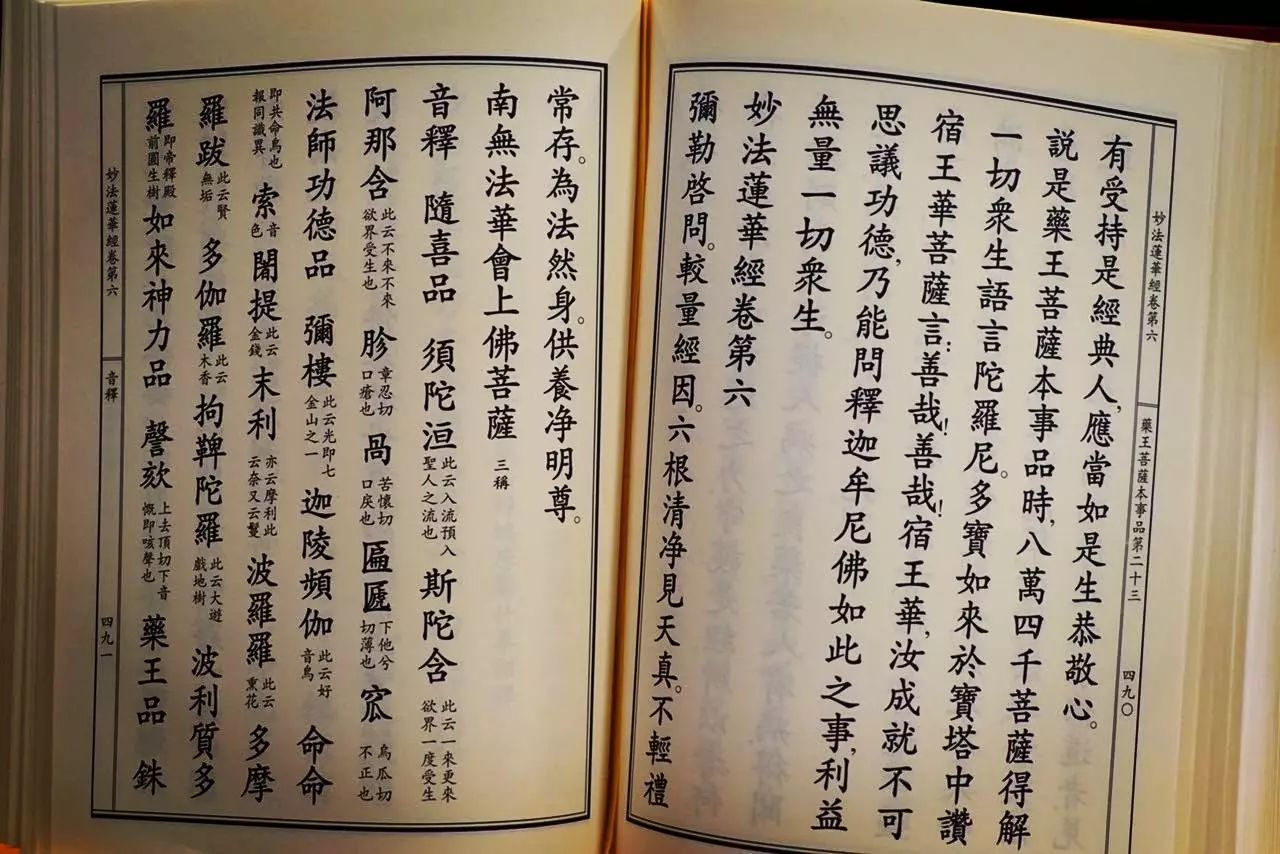 妙法蓮華經卷第六 藥王菩薩本事品第二十三 四九〇
有受持是經典人,應當如是生恭敬心。
説是藥王菩薩本事品時,八萬四千菩薩得解
一切衆生語言陀羅尼。多寶如來於寶塔中讚
宿王華菩薩言:善哉!善哉!宿王華,汝成就不可
思議功德,乃能問釋迦牟尼佛如此之事,利益
無量一切衆生。
妙法蓮華經卷第六
彌勒啓問。較量經因。六根清净見天真。不輕禮
常存。為法然身。供養净明尊。
南無法華會上佛菩薩 三稱
音釋 隨喜品 須陀洹 此云入流預入聖人之流也 斯陀含 此云一來更來欲界一度受生
阿那含 此云不來不來欲界受生也 胗 章忍切口瘡也 咼 苦懷切口戾也 匾㔸 下他兮切薄也 窊 烏瓜切不正也
法師功德品 彌樓 此云光即七金山之一 迦陵頻伽 此云好音鳥 命命
即共命鳥也報同識異 索 音色 闍提 此云金錢 末利 亦云摩利此云奈又云鬘 波羅羅 此云熏花 多摩
羅跋 此云賢無垢 多伽羅 此云木香 拘鞞陀羅 此云大遊戲地樹 波利質多
羅 即帝釋殿前園生樹 如來神力品 謦欬 上去頂切下音慨即咳聲也 藥王品 銖
妙法蓮華經卷第六 音釋 四九一